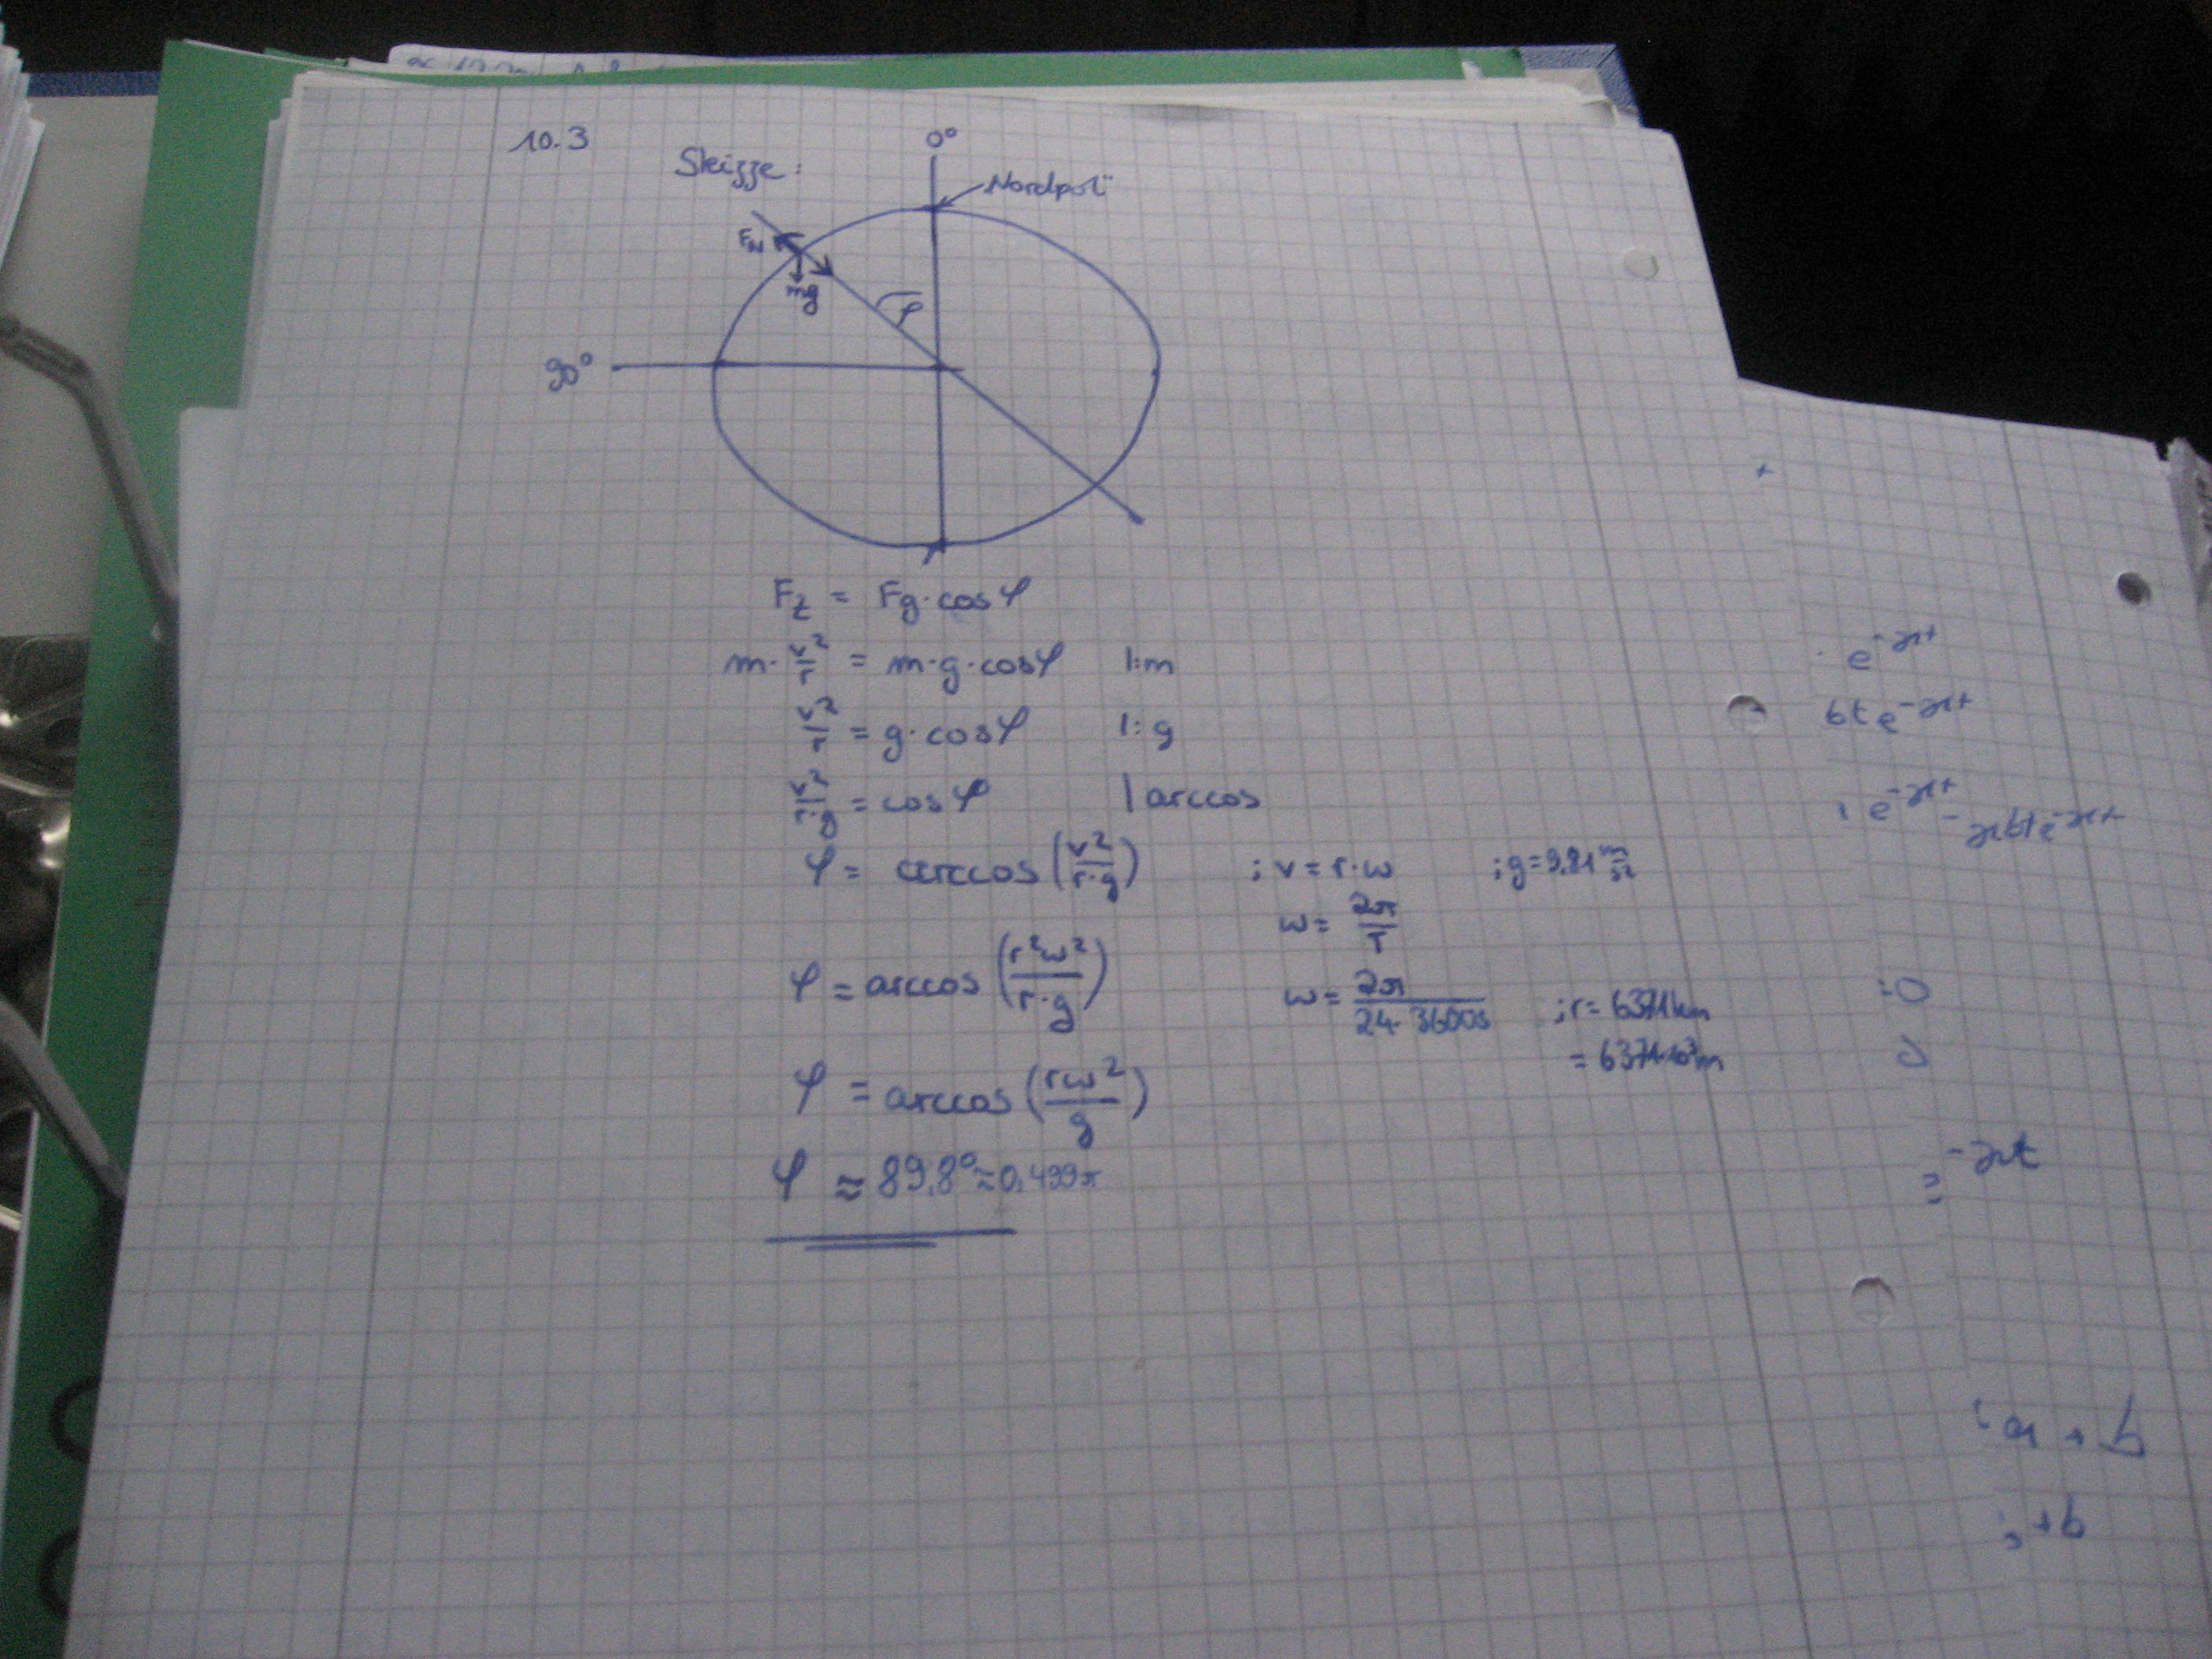 10.3
Skizze:
0°
"Nordpol"
F_N
mg
φ
90°
F_z = Fg·cosφ
m·v²/r = m·g·cosφ |:m
v²/r = g·cosφ |:g
v²/(r·g) = cosφ | arccos
φ = arccos(v²/(r·g)) ; v = r·ω ; g = 9,81 m/s²
ω = 2π/T
φ = arccos(r²ω²/(r·g)) ω = 2π/(24·3600s) ; r = 6371km
= 6371·10³m
φ = arccos(rω²/g)
φ ≈ 89,8° ≈ 0,499π